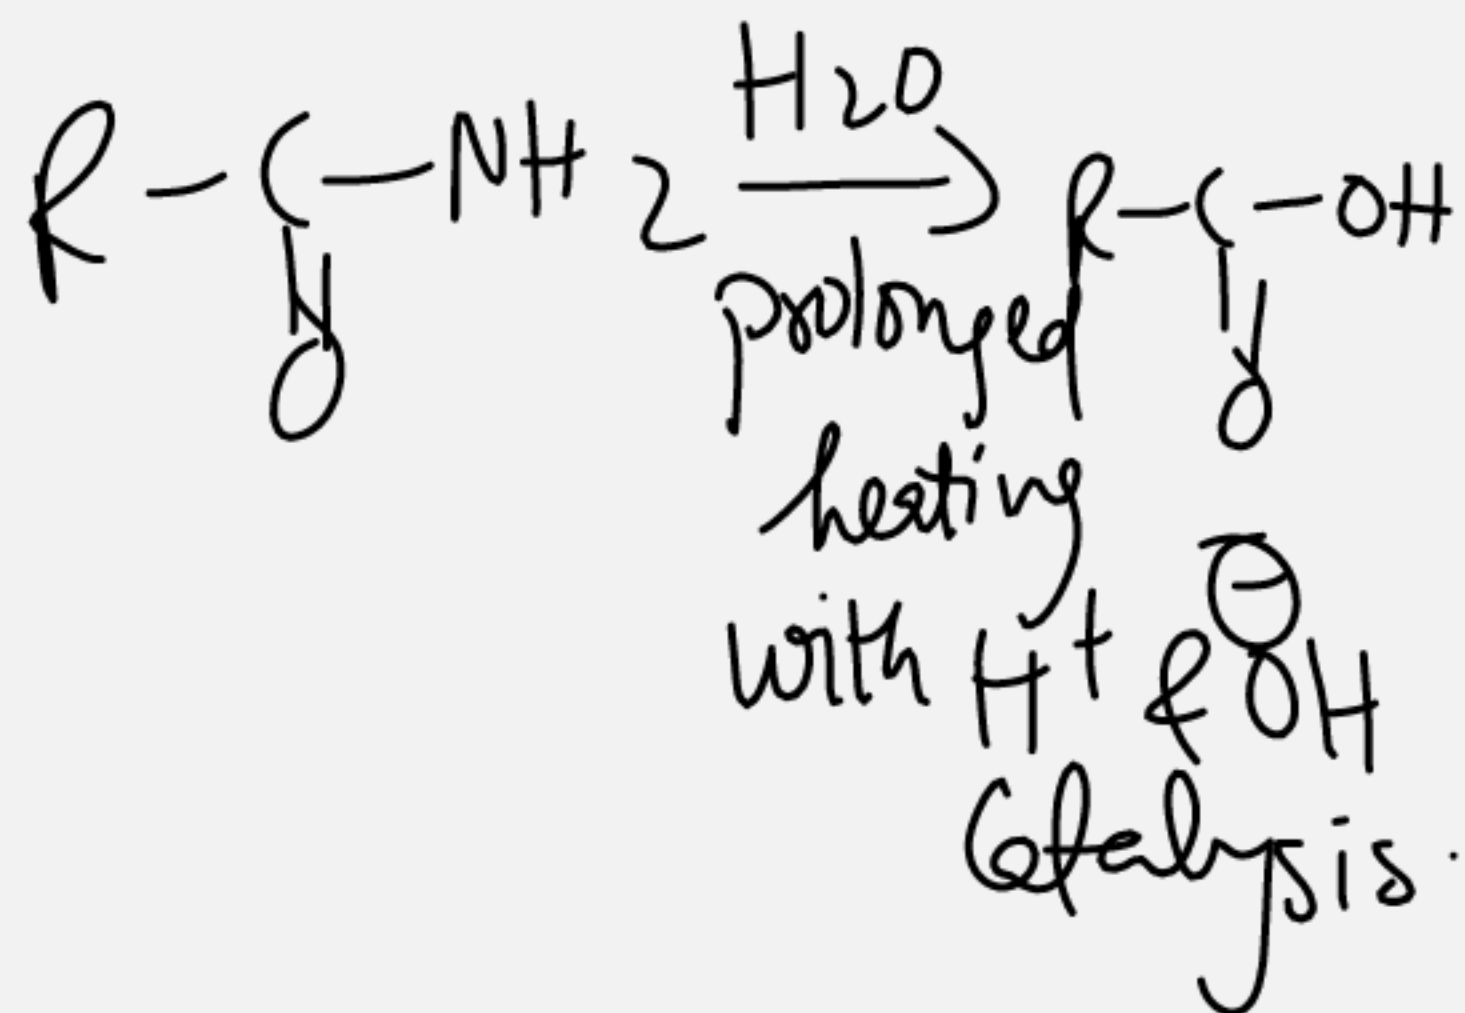 R-C-NH2 H2O R-C-OH
O O
prolonged
heating
with H+ & ⊖OH
Catalysis.